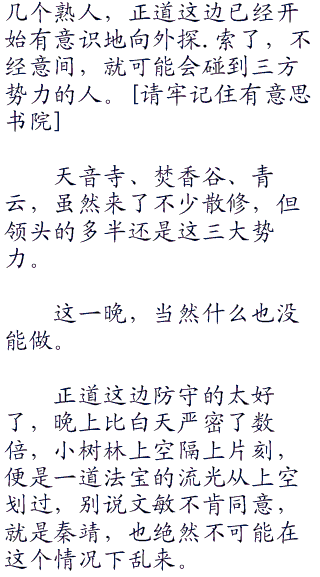 几个熟人，正道这边已经开
始有意识地向外探.索了，不
经意间，就可能会碰到三方
势力的人。[请牢记住有意思
书院]
天音寺、焚香谷、青
云，虽然来了不少散修，但
领头的多半还是这三大势
力。
这一晚，当然什么也没
能做。
正道这边防守的太好
了，晚上比白天严密了数
倍，小树林上空隔上片刻，
便是一道法宝的流光从上空
划过，别说文敏不肯同意，
就是秦靖，也绝然不可能在
这个情况下乱来。